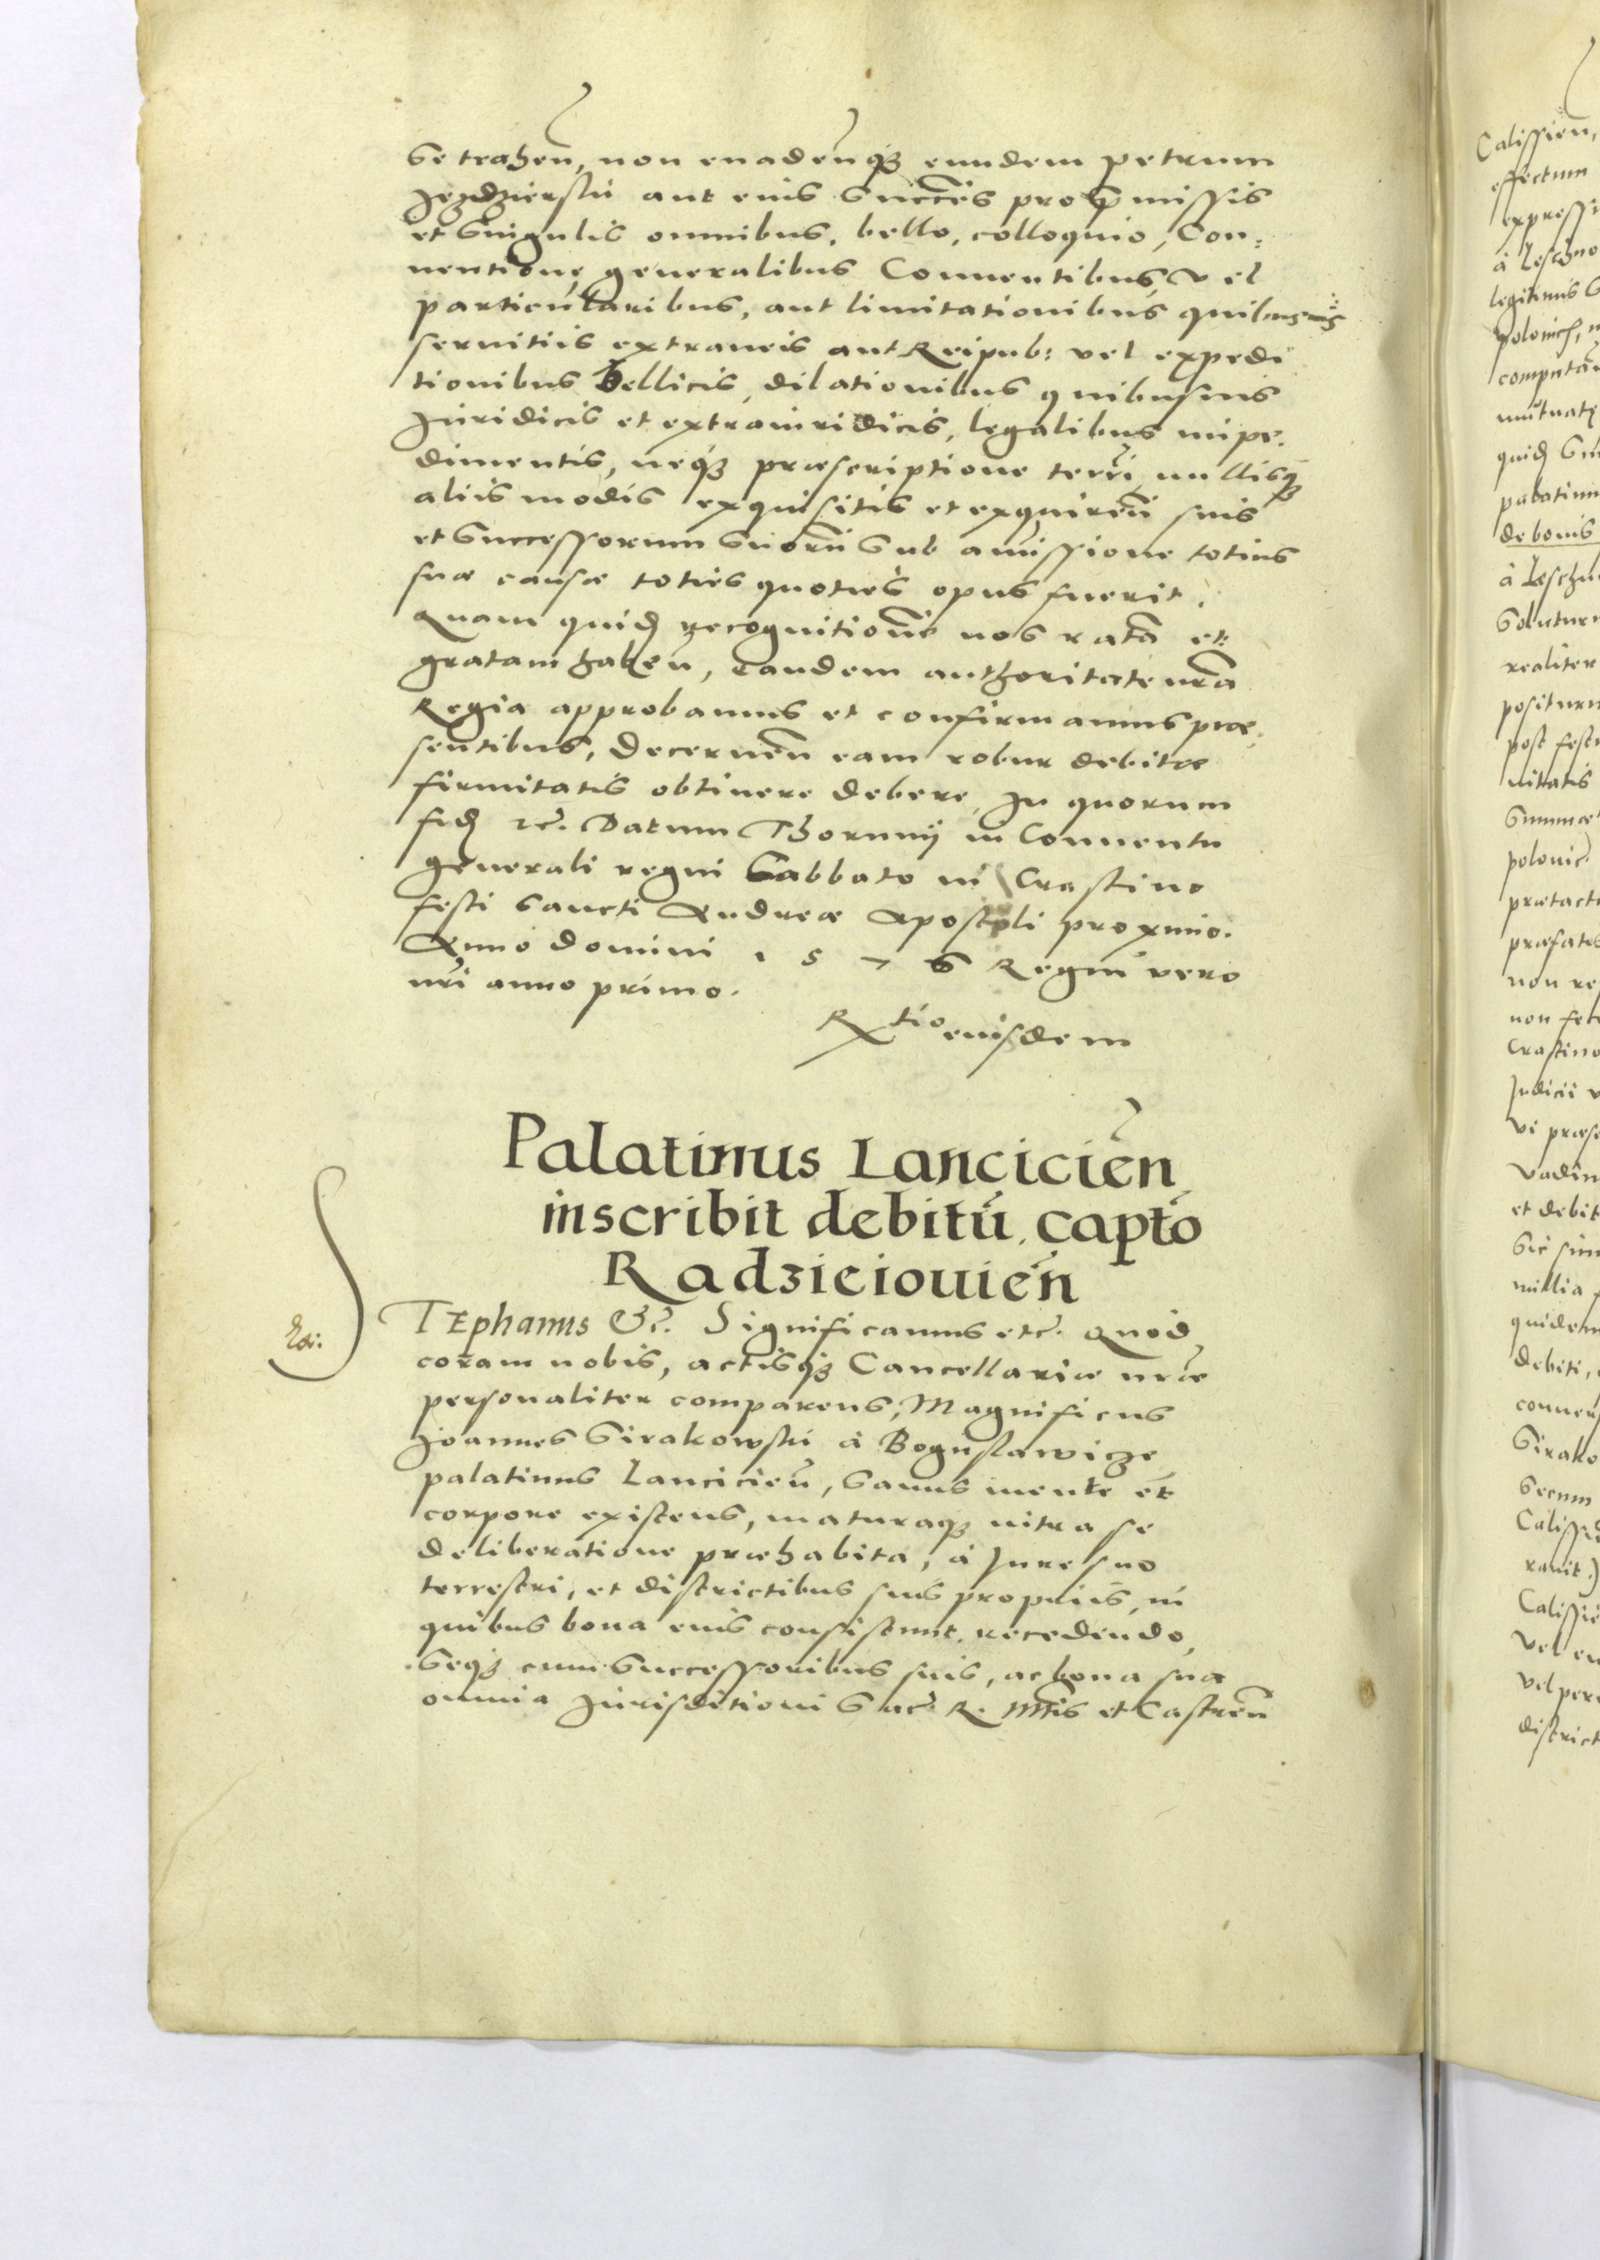 se trahen, non euadenq₃ eundem petrum
Jezdzierski aut eius succes pro p̄missis
et singulis omnibus, bello, colloquio, Con:
uentione, generalibus Conuentibus, vel
particularibus, aut limitationibus quibusuis
seruitiis extraneis aut Reipub: vel expedi
tionibus Bellicis, dilationibus quibusuis
Juridicis et extraiuridicis, legalibus impe.
dimentis, neq₃ præscriptione terrī nullisq₃
aliis modis exquisitis et exquiren̄ suis
et Successorum suorū sub amissione totius
suæ causæ toties quoties opus fuerit.
Quam quid recognitionē nos ratā et
gratam haben̄, eandem authoritate nrā
Regia approbamus et confirmamus præ,
sentibus, decernen̄ eam robur debitæ
firmitatis obtinere debere, In quorum
fid ec. Datum Thorunij in Conuentu
generali regni Sabbato in Crastino
festi sancti Andreæ Apostoli proximo.
Anno domini 1 5 7 6 Regni vero
nrī anno primo.
Rtio eiusdem
Palatinus Lancicien̄
inscribit debitū, capto
Radzieiouien̄
STEphanus &c. Significamus etc. Quod
coram nobis, actisq₃ Cancellariæ nræ
personaliter comparens, Magnificus
Joannes Sirakowski à Boguslawicze
palatinus Lancicien̄, sanus mente et
corpore existens, maturaq₃ intra se
deliberatione præhabita, à Jure suo
terrestri, et districtibus suis propriis, in
quibus bona eius consistunt, recedendo,
Seq₃ cum Successoribus suis, ac bona sua
omnia Jurisditioni Sac R. Mtis et Castren̄
Calissien,
effectum
à Leschno
legitimis S
polonich,
mutuatę
quid
palatinu
de bonis
à Leschn
realiter
post fest
Summæ
polonic
non re
Crastino
Judicii v
et debit
millia
quidem
debiti,
Sirako
Secum
rauit.)
vel per
district